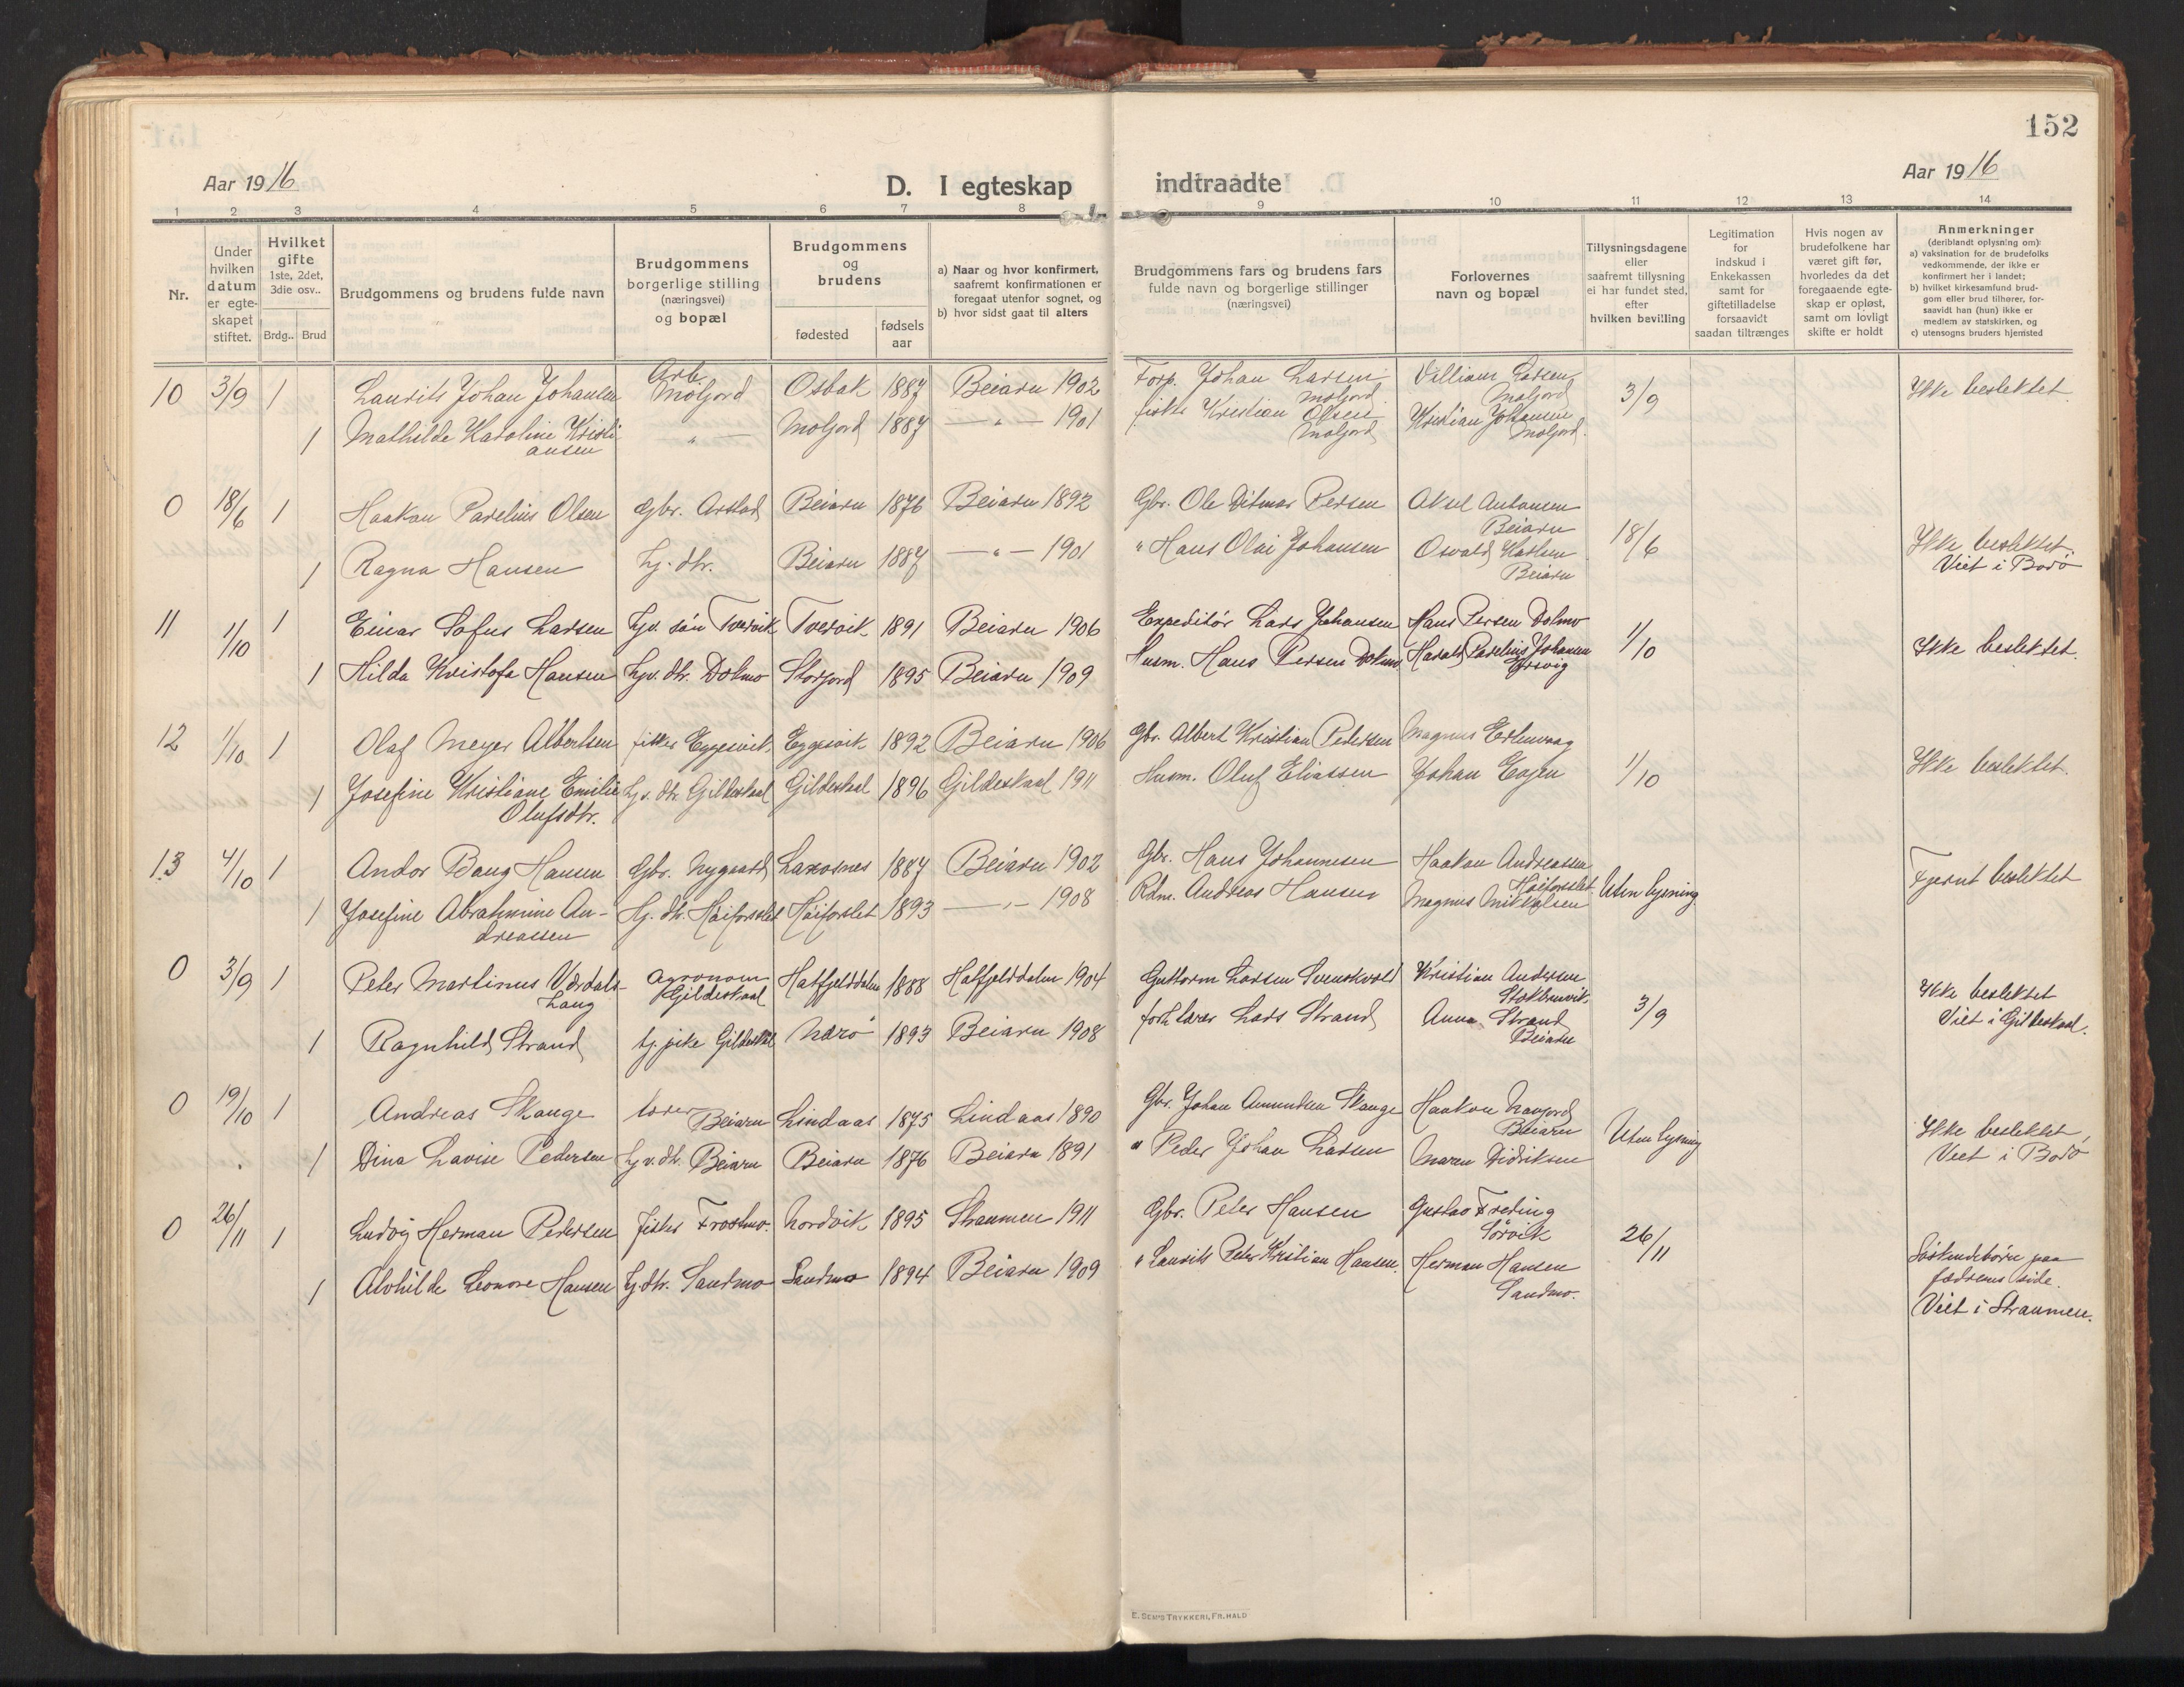 152
Aar 1916
D. I egteskap indtraadte
Aar 1916
1 2 3 4 5 6 7 8 9 10 11 12 13 14
Nr.
Under hvilken datum er egteskapet stiftet.
Hvilket gifte
1ste, 2det, 3die osv..
Brdg.. Brud
Brudgommens og brudens fulde navn
Brudgommens borgerlige stilling (næringsvei) og bopæl
Brudgommens og brudens
fødested
fødsels aar
a) Naar og hvor konfirmert, saafremt konfirmationen er foregaat utenfor sognet, og
b) hvor sidst gaat til alters
Brudgommens fars og brudens fars fulde navn og borgerlige stillinger (næringsvei)
Forlovernes navn og bopæl
Tillysningsdagene eller saafremt tillysning ei har fundet sted, efter hvilken bevilling
Legitimation for indskud i Enkekassen samt for giftetilladelse forsaavidt saadan tiltrænges
Hvis nogen av brudefolkene har været gift før, hvorledes da det foregaaende egteskap er opløst, samt om lovligt skifte er holdt
Anmerkninger
(deriblandt oplysning om):
a) vaksination for de brudefolks vedkommende, der ikke er konfirmert her i landet;
b) hvilket kirkesamfund brudgom eller brud tilhører, forsaavidt han (hun) ikke er medlem av statskirken, og
c) utensogns bruders hjemsted
10 3/9 1 Laurits Johan Johansen Arb. Moljord Osbak 1887 Beiarn 1902 Forp. Johan Larsen Moljord Villiam Larsen Moljord 3/9 Ikke beslektet.
1 Mathilde Karoline Kristiansen — " — Moljord 1887 — " — 1901 fisker Kristian Olsen Moljord Kristian Johansen Moljord.
0 18/6 1 Haakon Parelius Olsen Gbr. Arstad Beiarn 1876 Beiarn 1892 Gbr. Ole Ditmar Persen Aksel Antonsen Beiarn 18/6
1 Ragna Hansen Hj. dtr. Beiarn 1887 — " — 1901 " Hans Olai Johansen Osvald Karlsen Beiarn Ikke beslektet. Viet i Bodø
11 1/10 1 Einar Sofus Larsen Hjv. søn Tvervik Tvervik 1891 Beiarn 1906 Expeditør Lars Johansen Hans Persen Dolmo 1/10 Ikke beslektet.
1 Hilda Kristofa Hansen Hjv. dtr. Dokmo Storjord 1895 Beiarn 1909 Husm. Hans Persen Dokmo Harald Parelius Johansen Ersvig
12 1/10 1 Olaf Meyer Albertsen fisker Eggesvik Eggesvik 1892 Beiarn 1906 Gbr. Albert Kristian Pedersen Magnus Ertenvaag 1/10 Ikke beslektet.
1 Josefine Kristiane Emilie Olufsdtr. Hjv. dtr. Gildeskaal Gildeskaal 1896 Gildeskaal 1911 Husm. Oluf Eliassen Johan Evjen
13 4/10 1 Andor Bang Hansen Gbr. Nygaard Laxosnes 1887 Beiarn 1902 Gbr. Hans Johannesen Haakon Andreassen Høiforslet Uten lysning Fjernt beslektet
1 Josefine Abrahmine Andreassen Hj. dtr. Høiforslet Høiforslet 1893 — " — 1908 Rdm. Andreas Hansen Magnus Mikkelsen
0 3/9 1 Peter Martinus Værdals-Lang agronom Gildeskaal Hatfjelddalen 1888 Hatfjelddalen 1904 Guttorm Larsen Svenskvold Kristian Andersen 3/9 Ikke beslektet Viet i Gildeskaal.
1 Ragnhild Strand tj. pike Gildeskaal Nærø 1893 Beiarn 1908 forh. lærer Lars Strand Anna Strand Beiarn
0 19/10 1 Andreas Skauge lærer Beiarn Lindaas 1875 Lindaas 1890 Gbr. Johan Amundsen Skauge Haakon Navjord Beiarn Uten lysning Ikke beslektet, Viet i Bodø
1 Dina Lavise Pedersen Hjv. dtr. Beiarn Beiarn 1876 Beiarn 1891 " Peder Johan Larsen Maren Didriksen
0 26/11 1 Ludvig Herman Pedersen fisker Frostmo. Nordvik 1895 Straumen 1911 Gbr. Peter Hansen Gustav Freding Sørvik 26/11
1 Alvhilde Leonore Hansen Hj. dtr. Sandmo Sandmo 1894 Beiarn 1909 " Laurits Peter Kristian Hansen. Herman Hansen Sandmo. Søskendebørn paa fædrene side. Viet i Straumen.
E. SEM'S TRYKKERI, FR. HALD